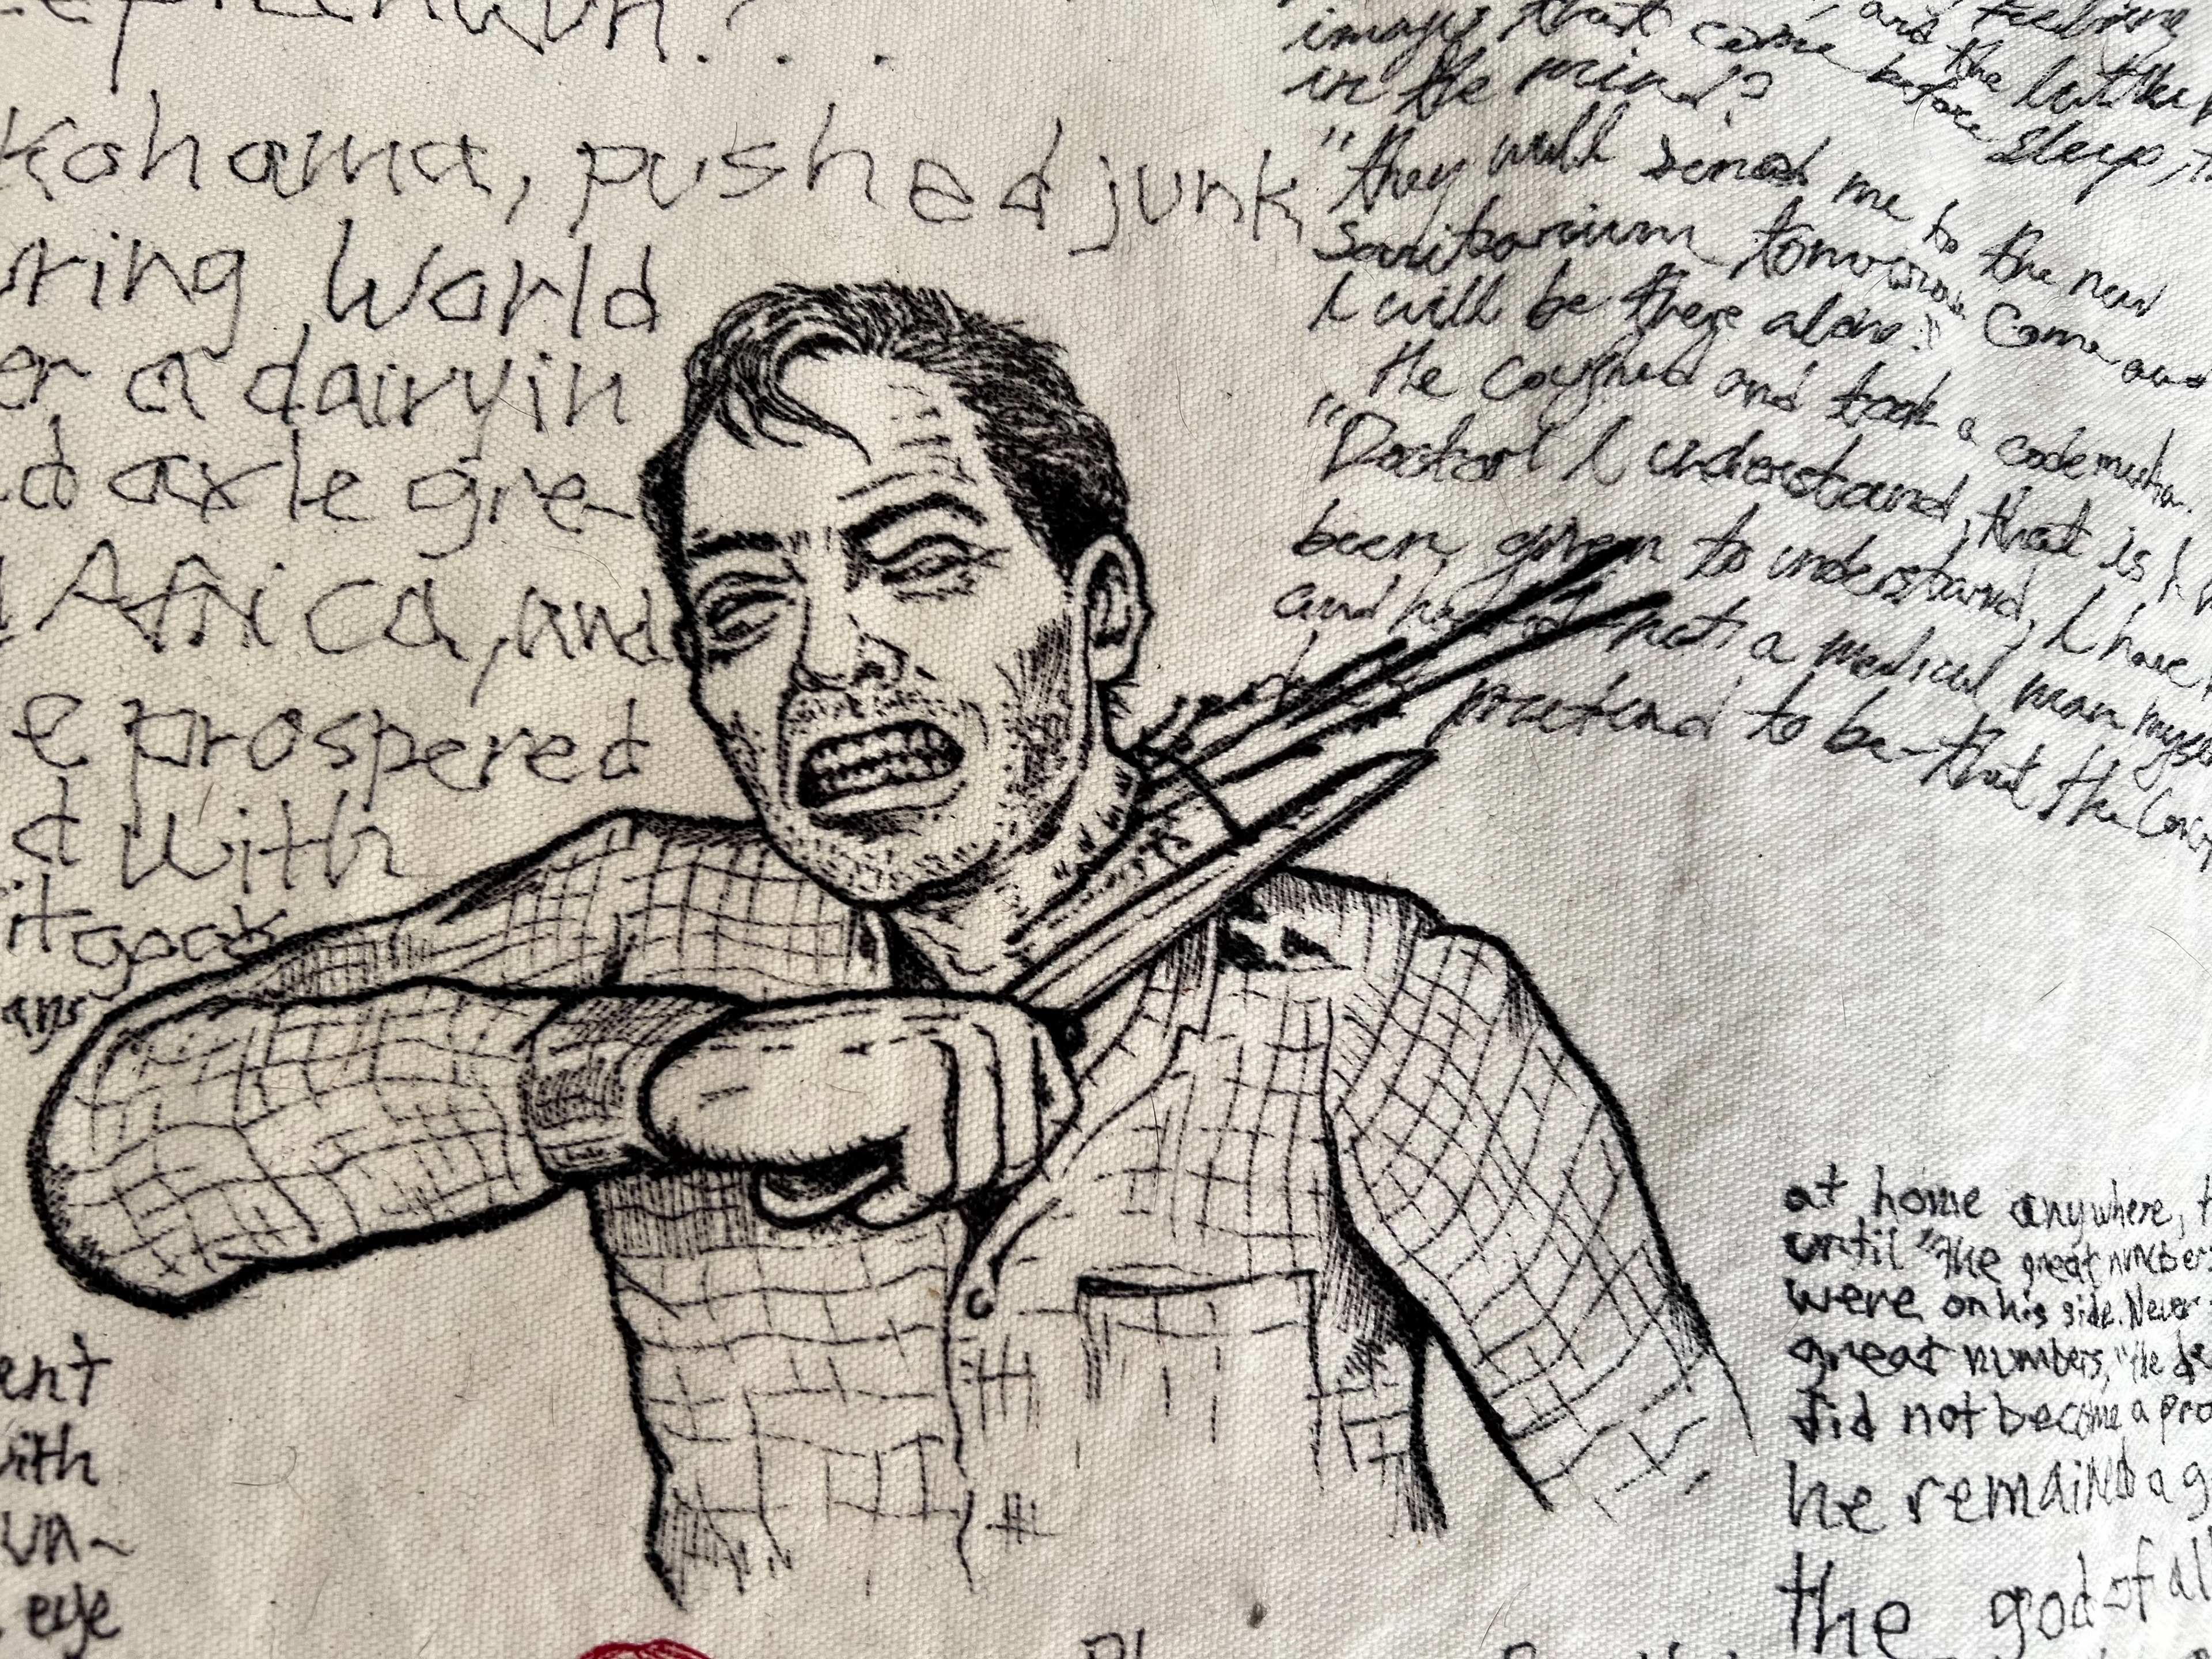 kohama, pushed junk
uring World
er a dairy in
d axle gre-
Africa, and
e prospered
d with
it goes
ans
ent
with
un-
eye
image that come before sleep,
in the mind?
"they will send me to the new
sanitarium tomorrow. Come and
I will be there alone."
He coughed and took a codeine
"Doctor I understand, that is I
been given to understand, I have
and not a medical man myself
pretend to be-that the
at home anywhere,
until "the great numbers
were on his side. Never
great numbers, "the
did not become a pro
he remained a g
the god of all